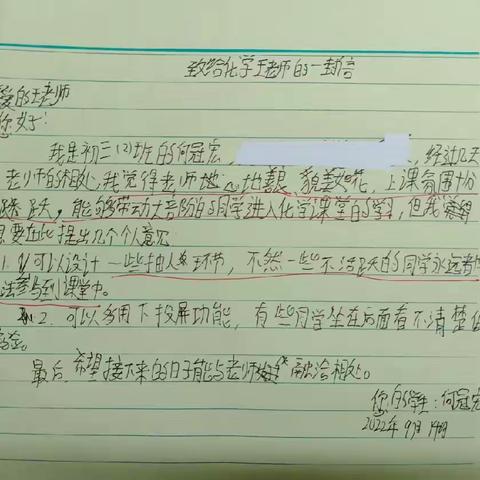 致给化学王老师的一封信
爱的王老师
您好:
我是初三(2)班的何冠宏, , 经过几天
老师的相处,我觉得老师地 地 貌美如花,上课氛围十分
跃,能够带动大部分的同学进入化学课堂的学习,但我
想要在此提出几个个人意见
1.可以设计一些抽人发 环节,不然一些不活跃的同学永远都
法参与到课堂中。
2.可以多用下投屏功能,有些同学坐在后面看不清楚

最后,希望接下来的日子能与老师 融洽相处。
您的学生:何冠宏
2022年9月14日